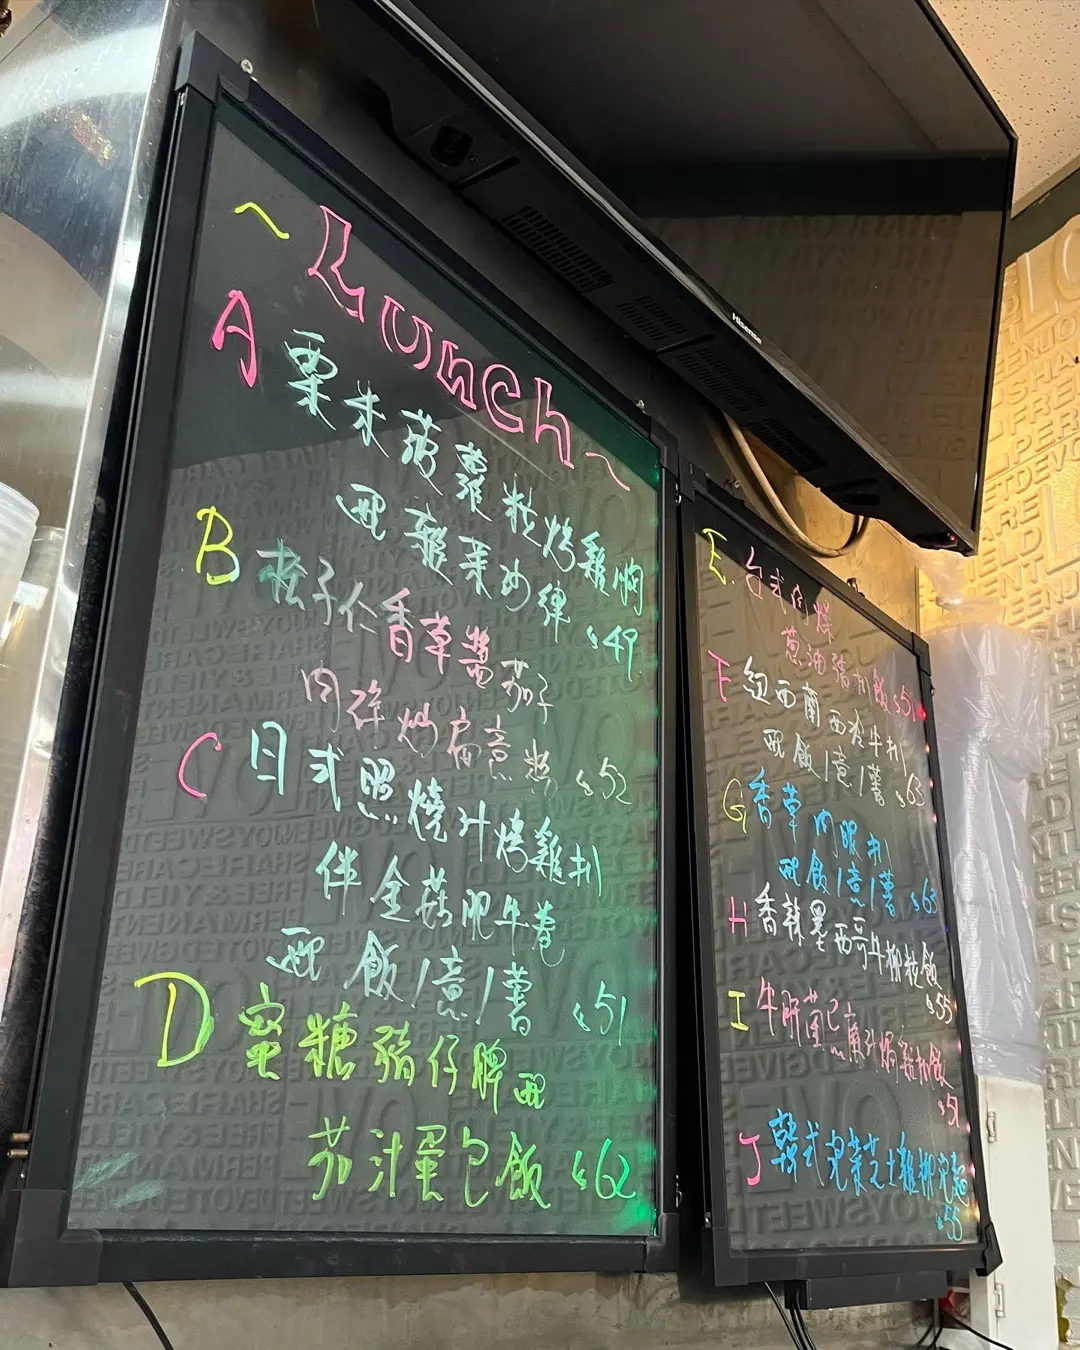 ~Lunch~
A 粟米菠蘿粒烤雞胸
配雜菜沙律 $49
B 松子仁香草醬茄子
肉碎炒扁意粉 $52
C 日式照燒汁烤雞扒
伴金菇肥牛卷
配飯/意/薯 $51
D 蜜糖豬仔髀配
茄汁蛋包飯 $62
Hisense
E. 台式
蔥油豬扒飯 $51
F 紐西蘭西冷牛扒
配飯/意/薯 $63
G 香草肉眼扒
配飯/意/薯 $63
H 香辣墨西哥牛柳粒飯
$55
I 牛肝菌忌廉汁焗雞扒飯
$51
J 韓式泡菜芝士雞柳
$55